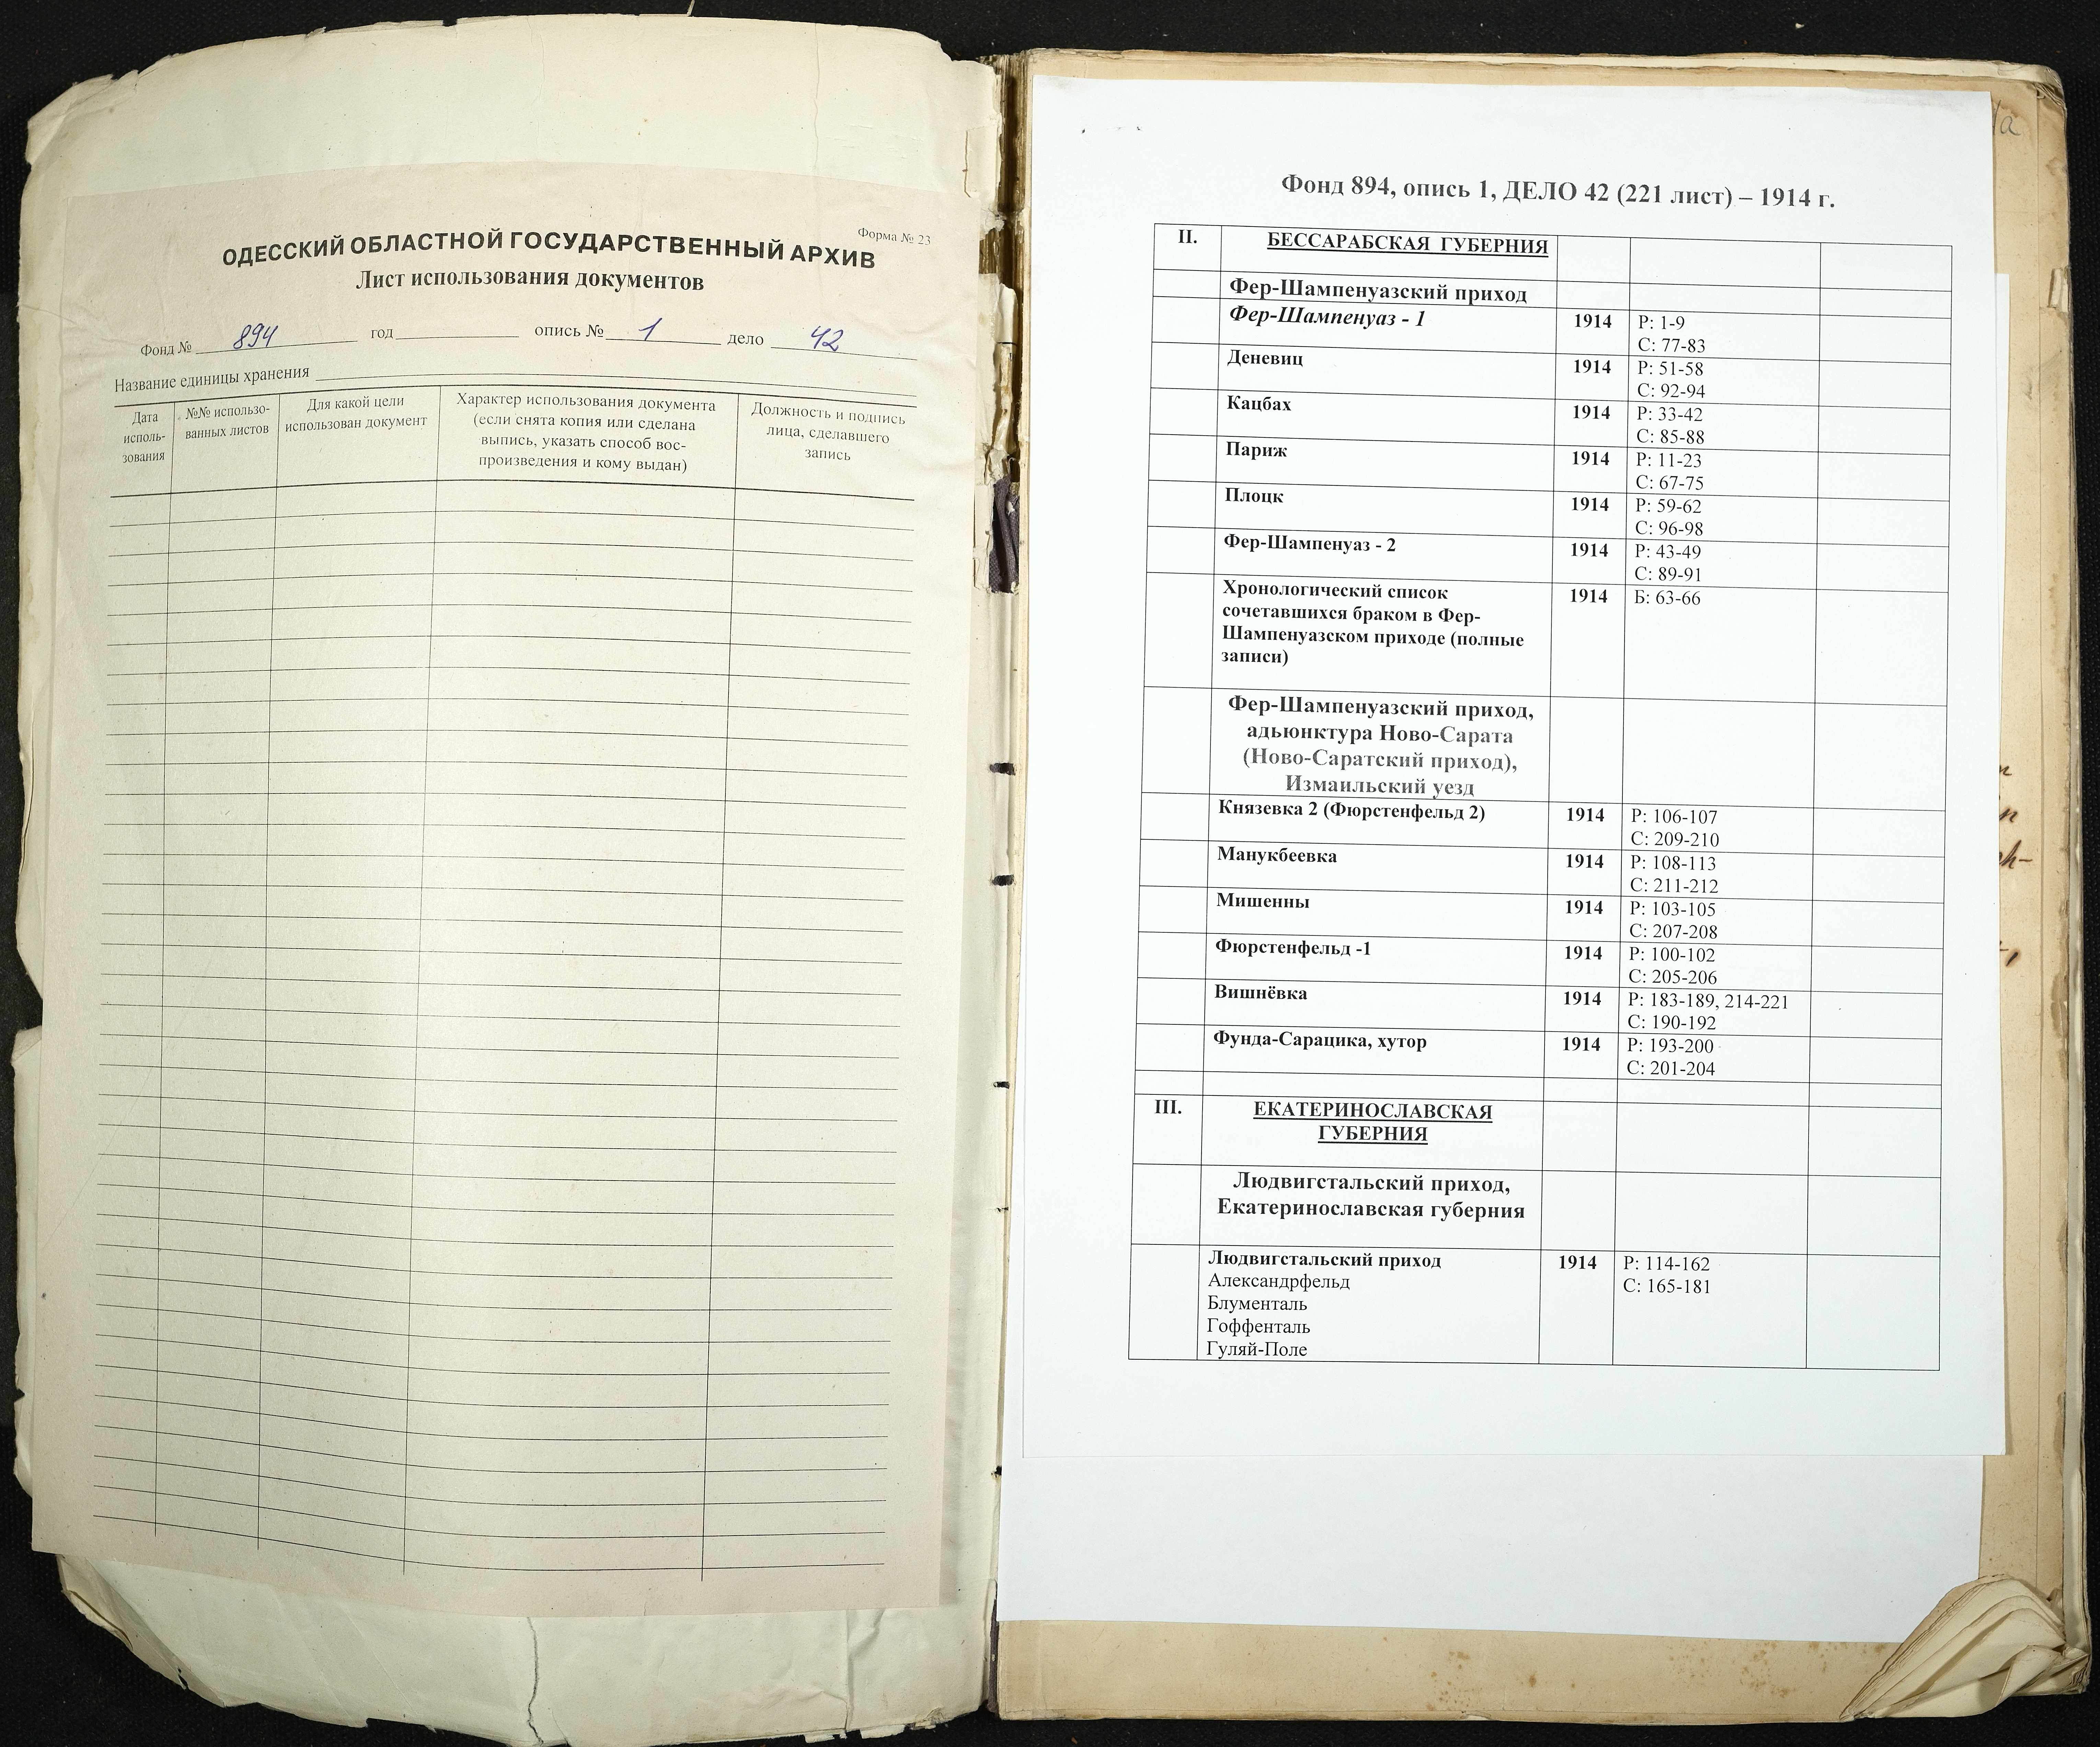 Форма № 23
ОДЕССКИЙ ОБЛАСТНОЙ ГОСУДАРСТВЕННЫЙ АРХИВ
Лист использования документов
Фонд № 894 год опись № 1 дело 42
Название единицы хранения
Дата исполь- зования
№№ использо- ванных листов
Для какой цели использован документ
Характер использования документа (если снята копия или сделана выпись, указать способ вос- произведения и кому выдан)
Должность и подпись лица, сделавшего запись
Фонд 894, опись 1, ДЕЛО 42 (221 лист) – 1914 г.
II. БЕССАРАБСКАЯ ГУБЕРНИЯ
Фер-Шампенуазский приход
Фер-Шампенуаз - 1 1914 Р: 1-9
С: 77-83
Деневиц 1914 Р: 51-58
С: 92-94
Кацбах 1914 Р: 33-42
С: 85-88
Париж 1914 Р: 11-23
С: 67-75
Плоцк 1914 Р: 59-62
С: 96-98
Фер-Шампенуаз - 2 1914 Р: 43-49
С: 89-91
Хронологический список 1914 Б: 63-66
сочетавшихся браком в Фер-
Шампенуазском приходе (полные
записи)
Фер-Шампенуазский приход,
адьюнктура Ново-Сарата
(Ново-Саратский приход),
Измаильский уезд
Князевка 2 (Фюрстенфельд 2) 1914 Р: 106-107
С: 209-210
Манукбеевка 1914 Р: 108-113
С: 211-212
Мишенны 1914 Р: 103-105
С: 207-208
Фюрстенфельд -1 1914 Р: 100-102
С: 205-206
Вишнёвка 1914 Р: 183-189, 214-221
С: 190-192
Фунда-Сарацика, хутор 1914 Р: 193-200
С: 201-204
III. ЕКАТЕРИНОСЛАВСКАЯ
ГУБЕРНИЯ
Людвигстальский приход,
Екатеринославская губерния
Людвигстальский приход 1914 Р: 114-162
Александрфельд С: 165-181
Блументаль
Гоффенталь
Гуляй-Поле